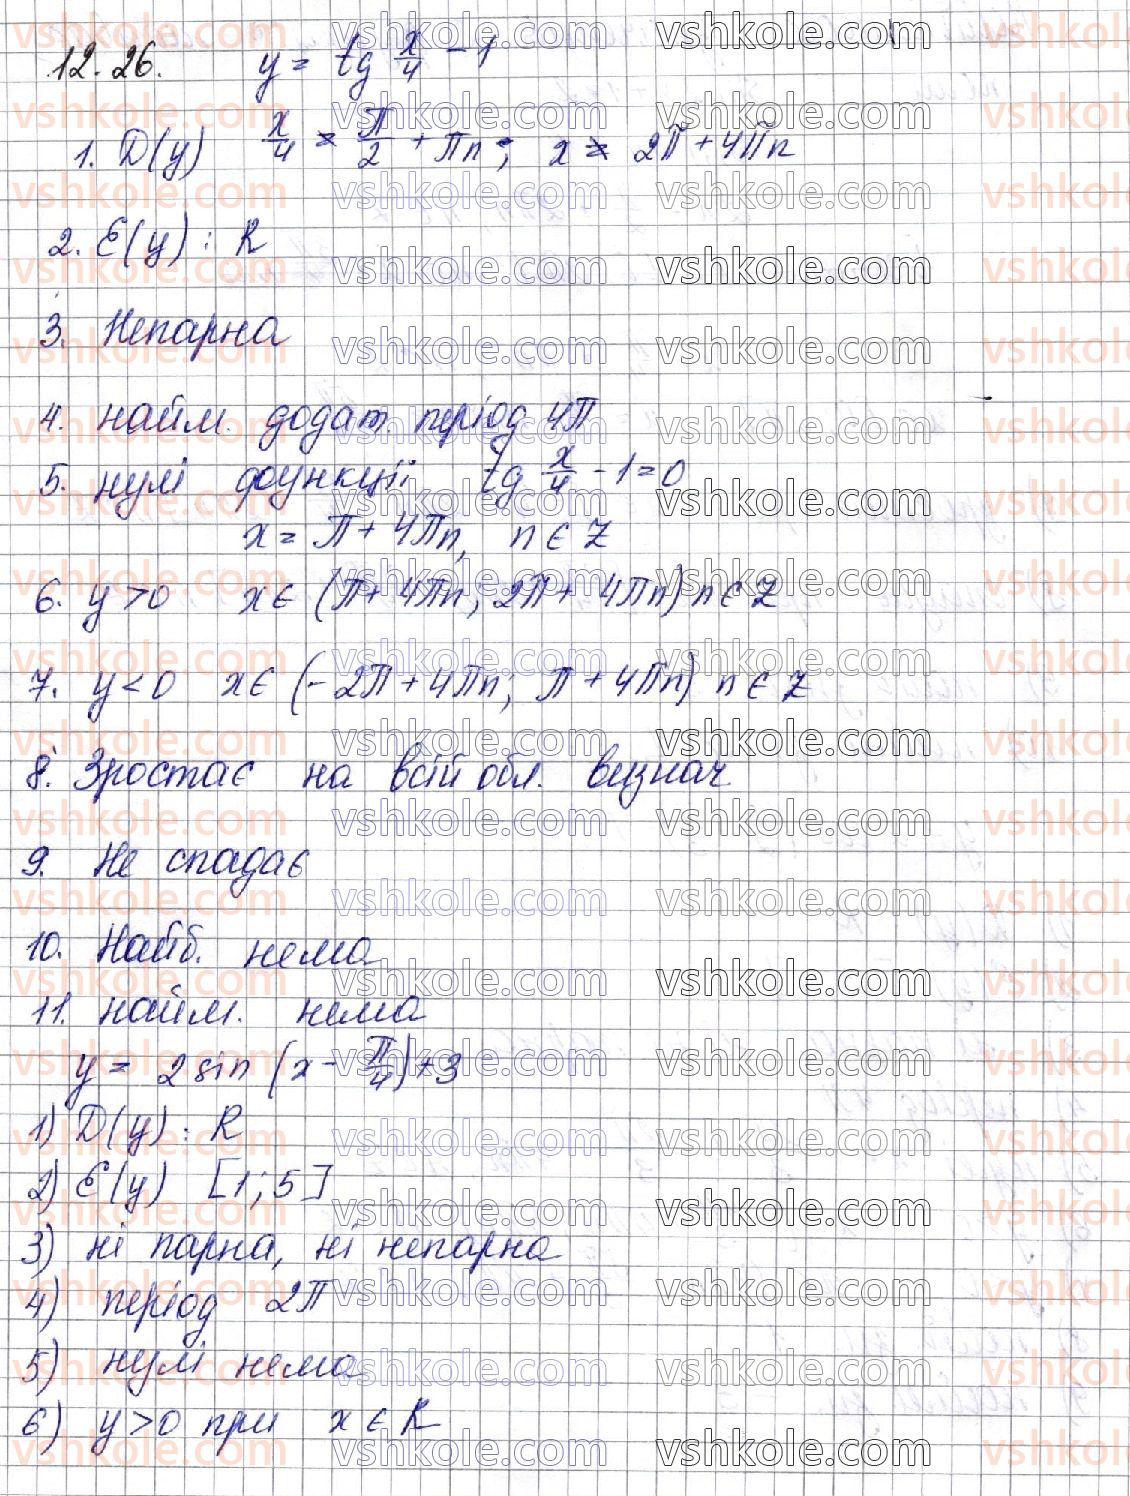 12.26. y = tg x/4 - 1
1. D(y) x/4 ≠ П/2 + Пn; x ≠ 2П + 4Пn
2. E(y): R
3. Непарна
4. найм. додат. період 4П
5. нулі функції tg x/4 - 1 = 0
x = П + 4Пn, n є Z
6. y > 0 x є (П + 4Пn; 2П + 4Пn) n є Z
7. y < 0 x є (-2П + 4Пn; П + 4Пn) n є Z
8. Зростає на всій обл. визнач
9. Не спадає
10. Найб. нема
11. найм. нема
y = 2 sin (x - П/4) + 3
1) D(y): R
2) E(y) [1; 5]
3) ні парна, ні непарна
4) період 2П
5) нулі нема
6) y > 0 при x є R